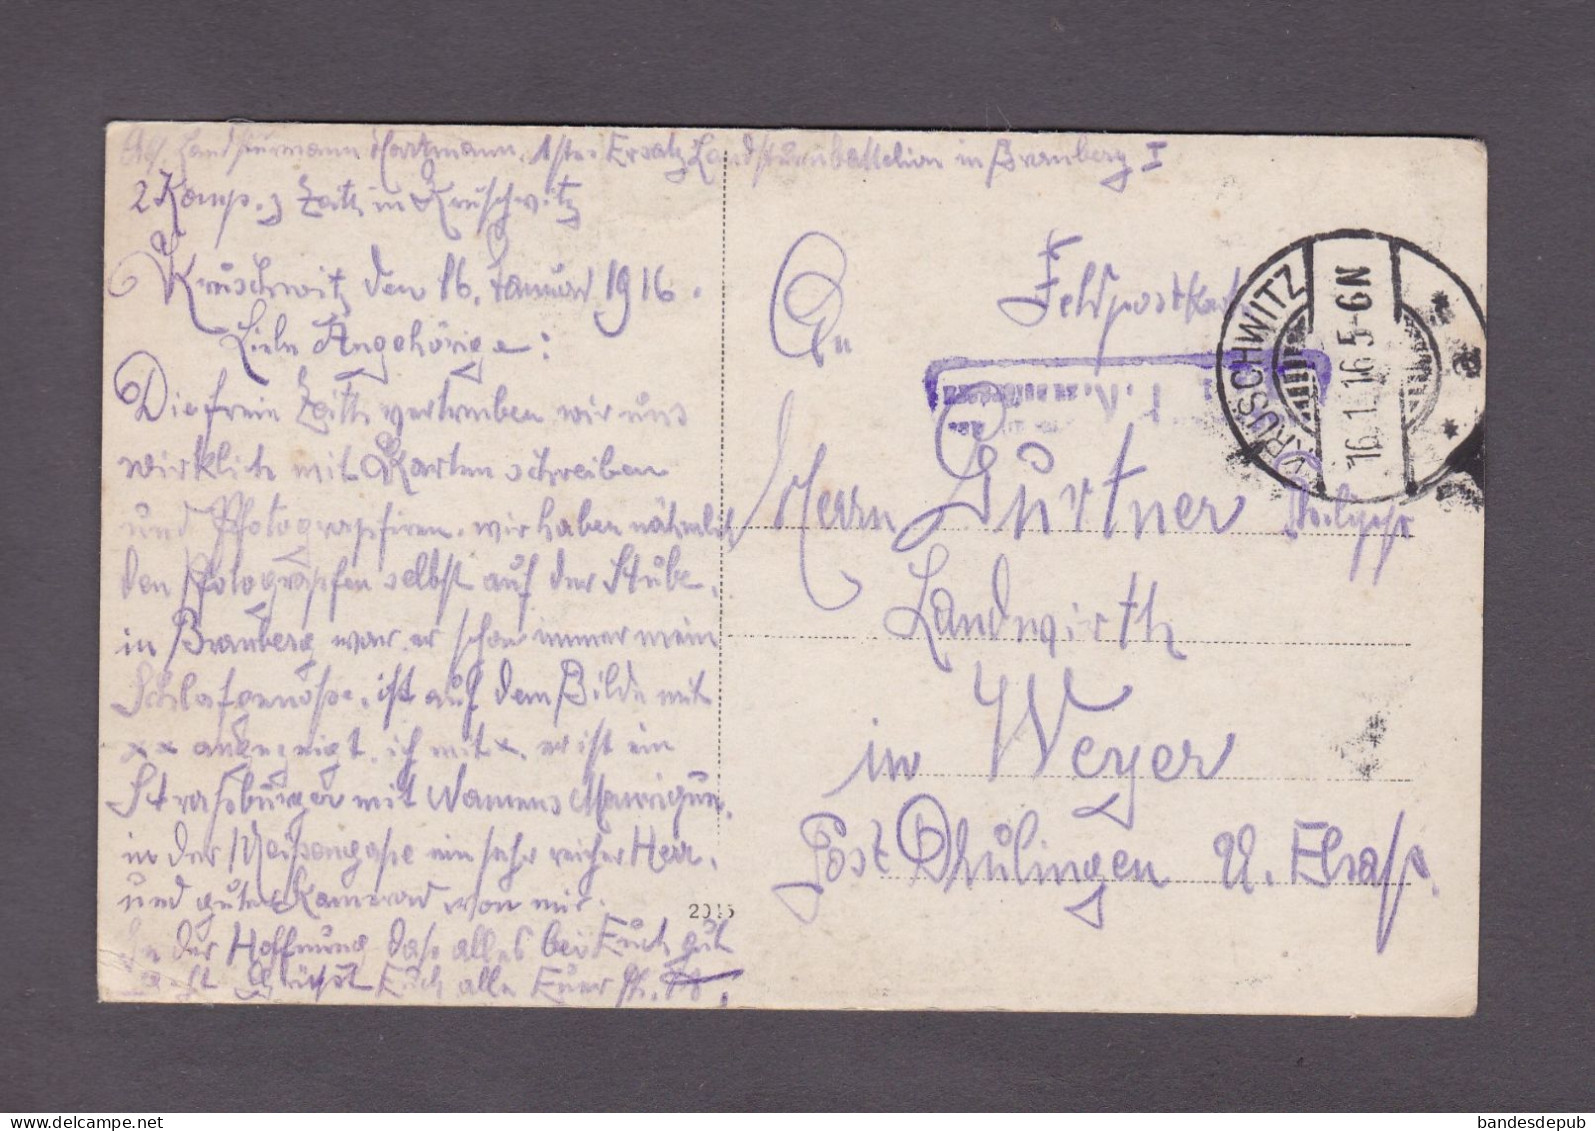 Abs. Landsturmann Hartmann. 1ster Ersatz Landsturmbattelion in Bramberg I
2 Komp. z Zeitt in Kruschwitz
Kruschwitz den 16. Januar 1916.
Liebe Angehörige:
Die freie Zeitt vertreiben wir uns
wirklich mit Karten schreiben
und Pfotograpfiren. wir haben nähmlich
den Pfotograpfen selbst auf der Stube.
in Bramberg war er schon immer mein
Schlafgenosse. ist auf dem Bilde mit
xx angezeigt. ich mit x. er ist ein
Strassburger mit Namens
in der Meisengasse ein sehr reicher Herr.
und guter Kamerad von mir.
In der Hoffnung dass alles bei Euch gut
geht Grüsst Euch alle Euer Ph.
2015
Feldpostkarte
An
Herrn Gürtner Philipp
Landwirth
in Weyer
Post Drulingen U. Elsass.
KRUSCHWITZ
16.1.16 5-6N
* a *
bandesdepub